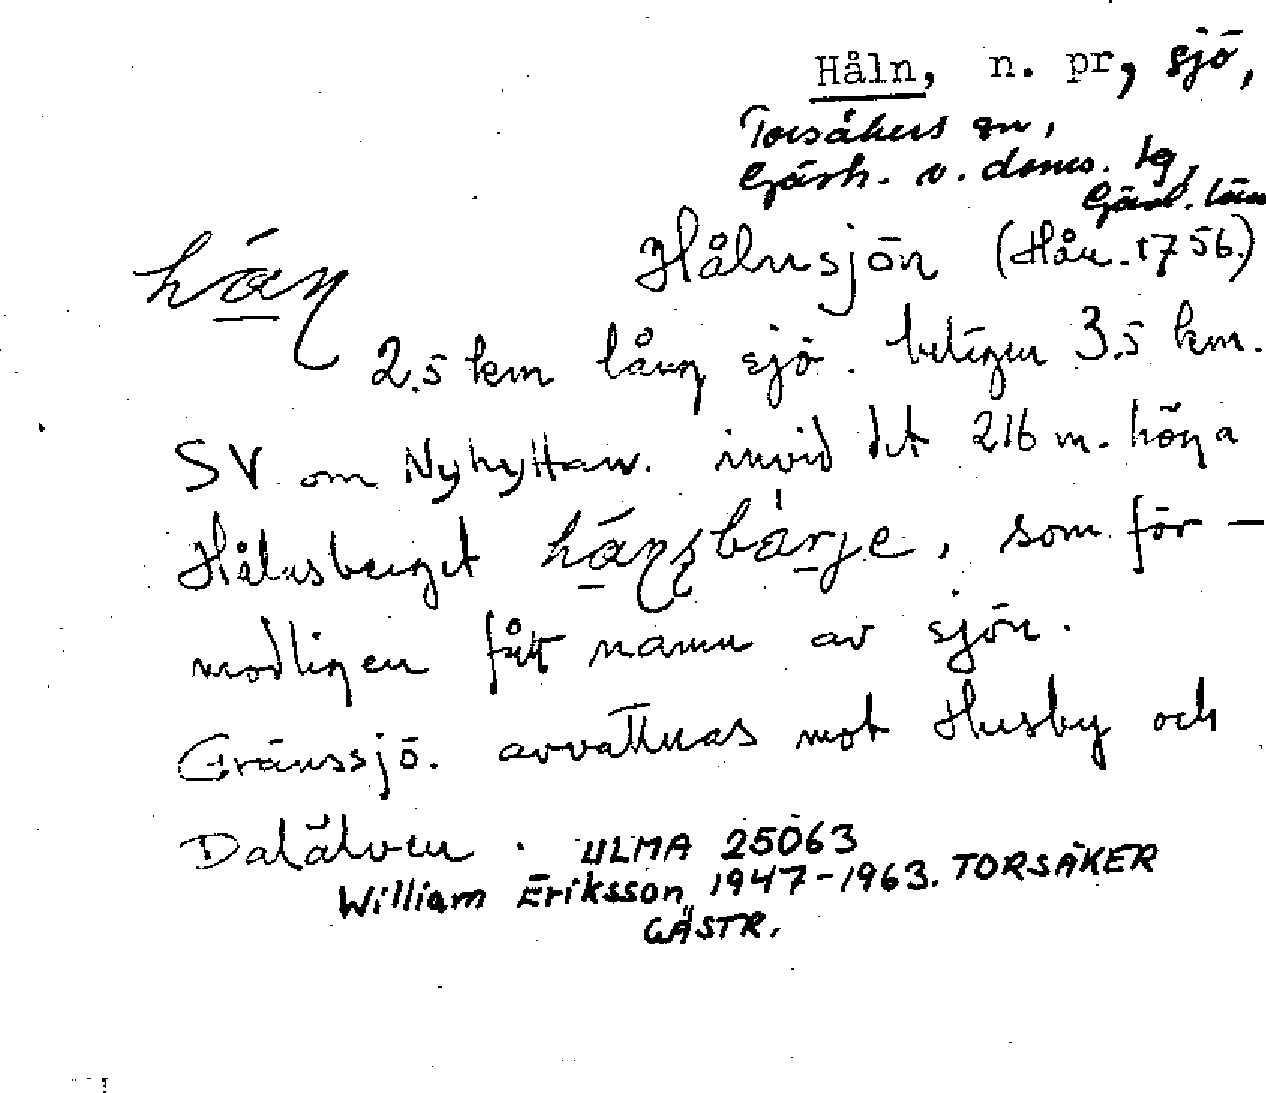 Håln, n. pr, sjö,
Torsåkers sn,
Gästr. v. doms. tg,
Gävl. län
hán̥ Hålnsjön (Hån. 1756.)
2.5 km lång sjö. belägen 3.5 km.
SV om Nyhyttan. invid det 216 m. höga
Hålnsberget , som för-
modligen fått namn av sjön.
Gränssjö. avvattnas mot Husby och
Dalälven. ULMA 25063
William Eriksson, 1947-1963. TORSÅKER
GÄSTR.